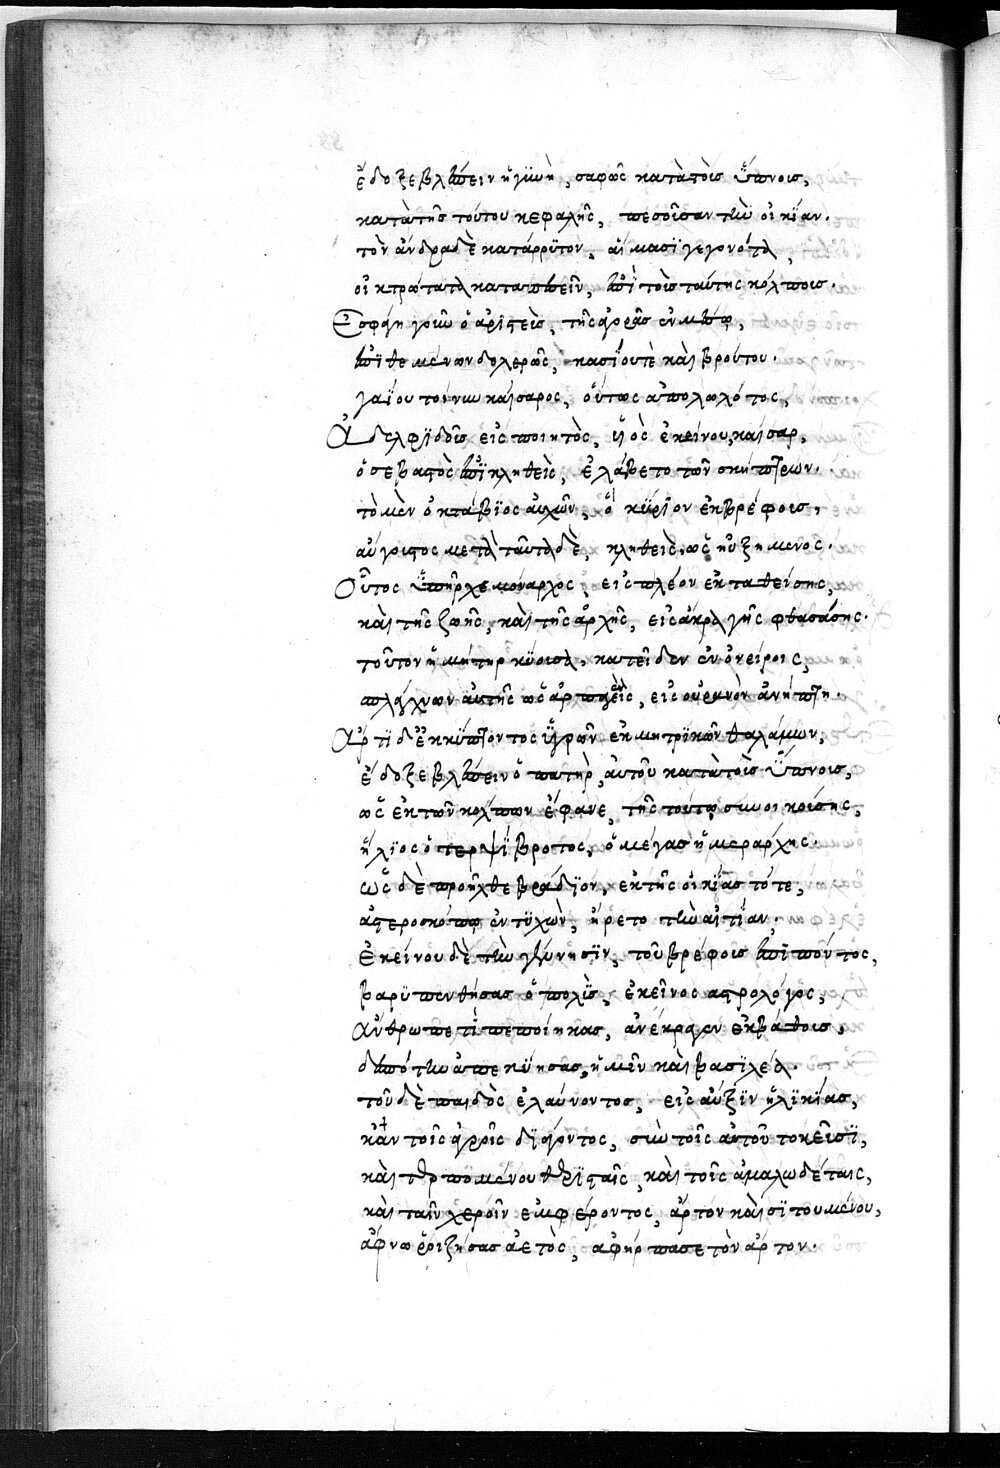 ἔδοξε βλέπειν ἡ γυνὴ, σαφῶς κατὰ τοὺς ὕπνους,
κατὰ τῆς τούτου κεφαλῆς, πεσοῦσαν τὴν οἰκίαν.
τὸν ἄνδρα δὲ κατάρρυτον, αἵμασι γεγονότα,
οἰκτρότατα καταπεσεῖν, ἐπὶ τοῖς ταύτης κόλποις.
Ἐσφάγη γοῦν ὁ ἀριστεὺς, τῆς ἀγορᾶς ἐν μέσῳ,
ἐπιθεμένων δολερῶς, κασίου τὲ καὶ βρούτου.
γαΐου τοίνυν καίσαρος, οὕτως ἀπολωλότος,
Ἀδελφιδοῦς εἰσποιητὸς, υἱὸς ἐκείνου καίσαρ,
ὁ σεβαστὸς ἐπικληθεὶς, ἐλάβετο τῶν σκήπτρων.
τὸ μὲν ὀκτάβιος αὐχῶν, κύριον ἐκ βρέφους,
αὔγουστος μετὰ ταῦτα δὲ, κληθεὶς ὡς ηὐξημένος.
Οὗτος ὑπῆρχε μόναρχος, εἰς πλέον ἐκταθείσης,
καὶ τῆς ζωῆς, καὶ τῆς ἀρχῆς, εἰς ἄκρα γῆς φθασάσης.
τοῦτον ἡ μήτηρ κύουσα, κατεῖδεν ἐν ὀνείροις,
σπλάγχνων αὐτῆς ὡς ἁρπαγεὶς, εἰς οὐρανὸν ἀνήπτη.
Ἄρτι δ' ἐκκύπτοντος ὑγρῶν ἐκ μητρικῶν θαλάμων,
ἔδοξε βλέπειν ὁ πατὴρ, αὐτοῦ κατὰ τοὺς ὕπνους,
ὡς ἐκ τῶν κόλπων ἔφανε, τῆς τούτῳ συνοικούσης,
ἥλιος ὁ τερψίβροτος, ὁ μέγας ἡμεράρχης.
ὡς δὲ προῆλθε βράδιον, ἐκ τῆς οἰκίας τότε,
ἀστεροσκόπῳ ἐντυχὼν, ἤρετο τὴν αἰτίαν.
Ἐκείνου δὲ τὴν γέννησιν, τοῦ βρέφους ἐπιπόντος,
βαρυπενθήσας ὁ πολὺς, ἐκεῖνος ἀστρολόγος,
ἄνθρωπε τί πεποίηκας, ἀνέκραγεν ἐκ βάθους,
δεσπότην ἀπεκύησας, ἡμῖν καὶ βασιλέα.
τοῦ δὲ παιδὸς ἐλαύνοντος, εἰς αὔξιν ἡλικίας,
κἀν τοῖς ἀγροῖς διάγοντος, σὺν τοῖς αὐτοῦ τοκεῦσι,
καὶ τερπομένου θερισταῖς, καὶ τοῖς ἀμαλλοδέταις,
καὶ ταῖν χεροῖν ἐμφέροντος, ἄρτον καὶ σιτουμένου,
ἄφνω ῥοιζήσας ἀετὸς, ἀφήρπασε τὸν ἄρτον.